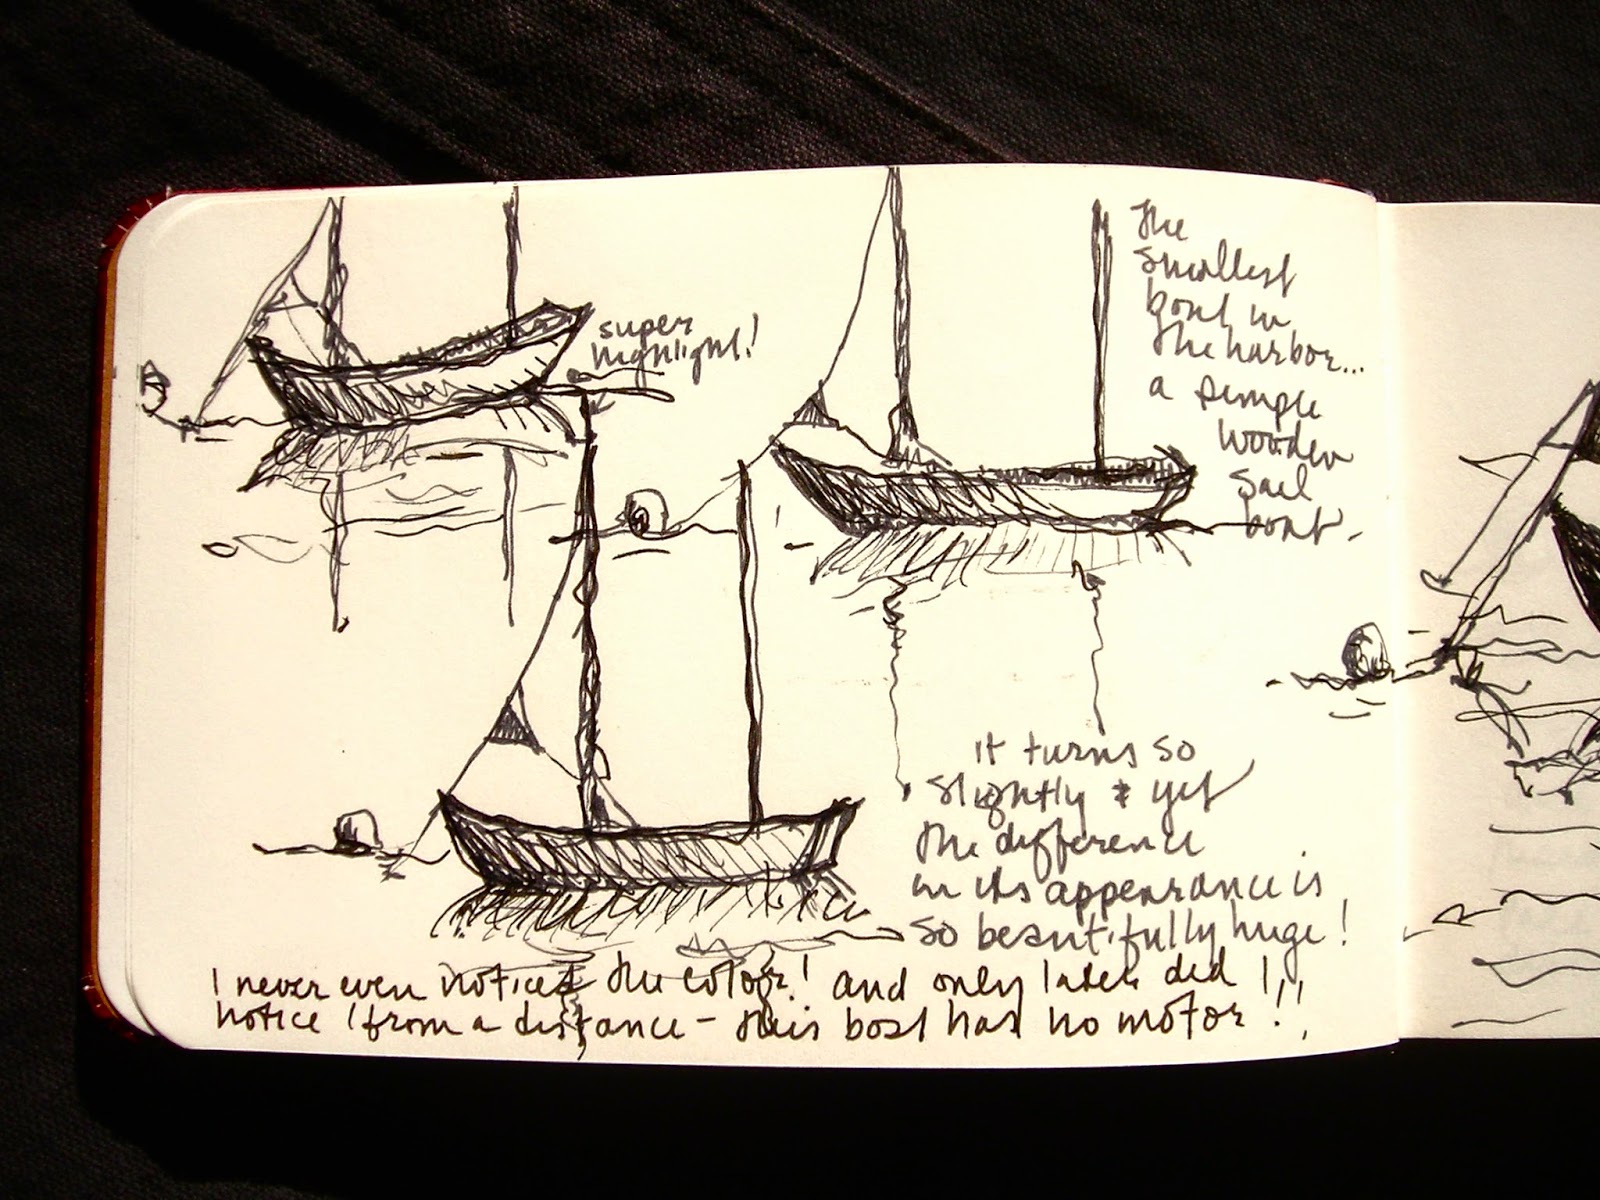 super
highlight!
The
smallest
boat in
the harbor...
a simple
wooden
sail
boat.
it turns so
slightly & yet
the difference
in its appearance is
so beautifully huge!
I never even noticed the color! and only later did I,
notice (from a distance - this boat has no motor!!